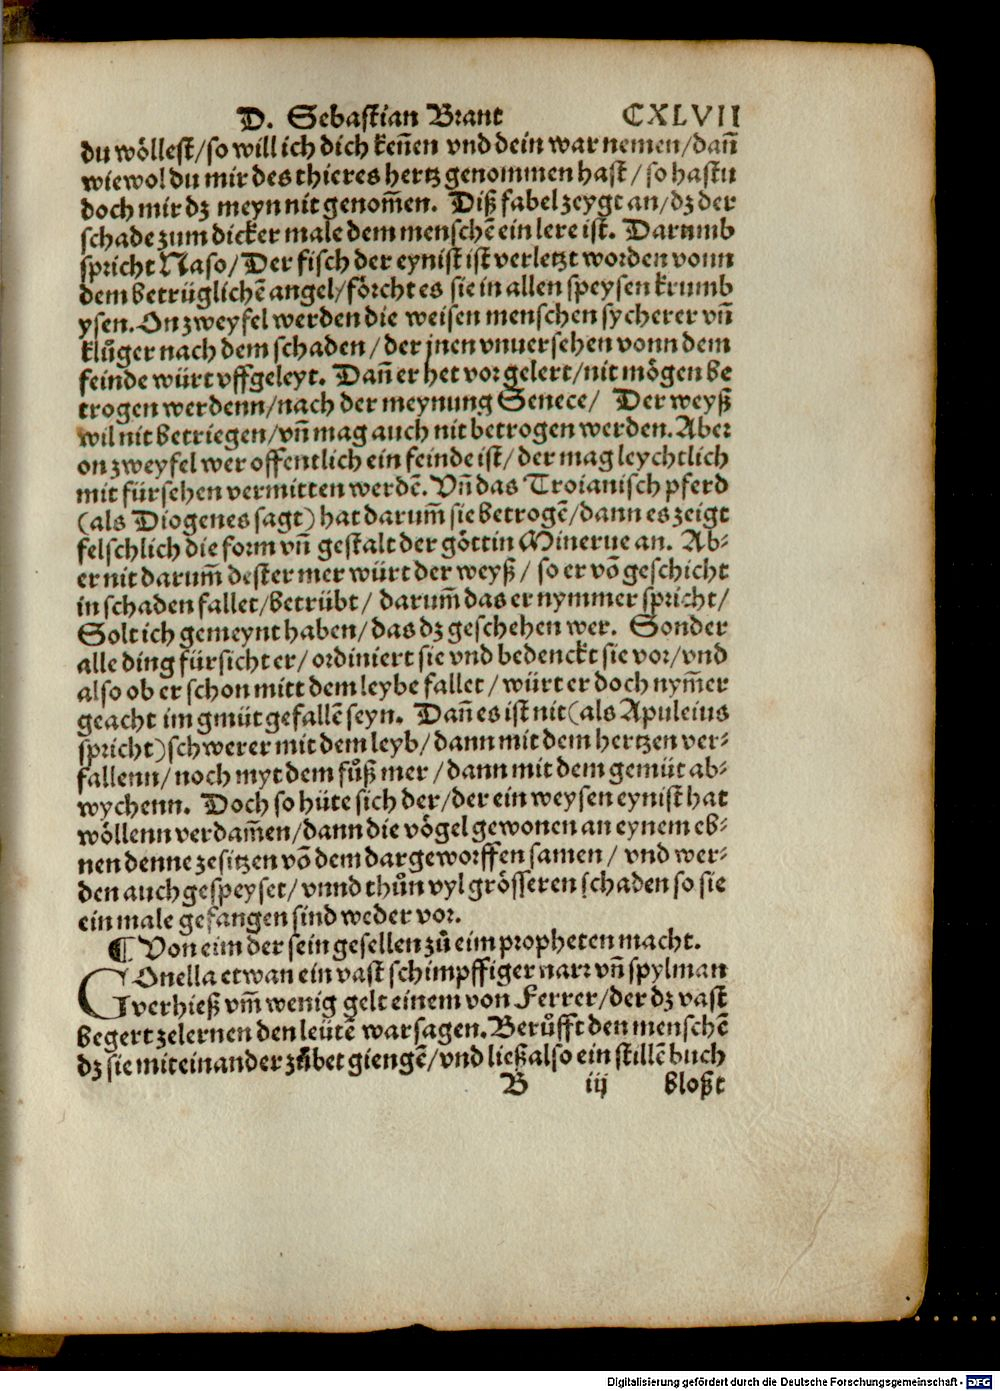 D. Sebastian Brant CXLVII
du wöllest/so will ich dich keñen vnd dein war nemen/dañ
wiewol du mir des thieres hertz genommen hast/so hastu
doch mir dz meyn nit genom̃en. Diß fabel zeygt an/dz der
schade zum dicker male dem menschẽ ein lere ist. Darumb
spricht Naso/Der fisch der eynist ist verletzt worden vonn
dem betrüglichẽ angel/förcht es sie in allen speysen krumb
ysen. On zweyfel werden die weisen menschen sycherer vñ
klůger nach dem schaden/der jnen vnuersehen vonn dem
feinde würt vffgeleyt. Dañ er het vor gelert/nit mögen be
trogen werdenn/nach der meynung Senece/ Der weyß
wil nit betriegen/vñ mag auch nit betrogen werden. Aber
on zweyfel wer offentlich ein feinde ist/der mag leychtlich
mit fürsehen vermitten werdẽ. Vñ das Troianisch pferd
(als Diogenes sagt) hat darum̃ sie betrogẽ/dann es zeigt
felschlich die form vñ gestalt der göttin Minerue an. Ab⸗
er nit darum̃ dester mer würt der weyß/so er võ geschicht
in schaden fallet/betrübt/ darum̃ das er nymmer spricht/
Solt ich gemeynt haben/das dz geschehen wer. Sonder
alle ding fürsicht er/ordiniert sie vnd bedenckt sie vor/vnd
also ob er schon mitt dem leybe fallet/würt er doch nym̃er
geacht im gmüt gefallẽ seyn. Dañ es ist nit (als Apuleius
spricht) schwerer mit dem leyb/dann mit dem hertzen ver⸗
fallenn/noch myt dem fůß mer/dann mit dem gemüt ab⸗
wychenn. Doch so hüte sich der/der ein weysen eynist hat
wöllenn verdam̃en/dann die vögel gewonen an eynem eb⸗
nen denne zesitzen võ dem dargeworffen samen/ vnd wer⸗
den auch gespeyset/vnnd thůn vyl grösseren schaden so sie
ein male gefangen sind weder vor.
¶ Von eim der sein gesellen zů eim propheten macht.
GOnella etwan ein vast schimpffiger narr vñ spylman
verhieß vm̃ wenig gelt einem von Ferrer/der dz vast
begert zelernen den leütẽ warsagen. Berůfft den menschẽ
dz sie miteinander zůbet giengẽ/vnd ließ also ein stillẽ buch
B iij bloßt
Digitalisierung gefördert durch die Deutsche Forschungsgemeinschaft - DFG